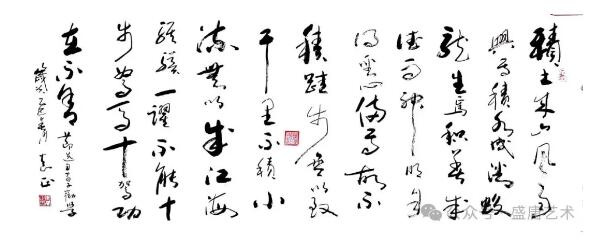 積土成山風雨
興焉積水成淵蛟
龍生焉積善成
德而神明自
得聖心備焉故不
積跬步無以致
千里不積小
流無以成江海
騏驥一躍不能十
步駑馬十駕功
在不舍
節選荀子勸學
歲次乙巳春月
正
公众号 · 盛唐艺术